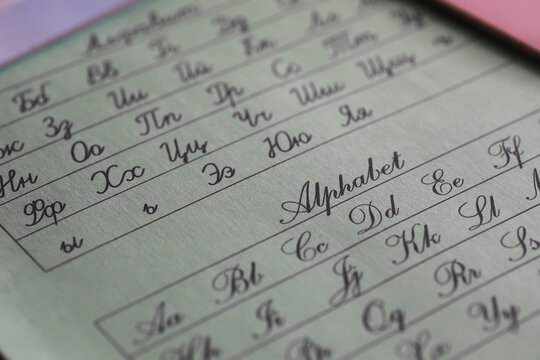 Алфавит
Бб Вв Гг Дд Ее
ж Зз Ии Йй Кк Лл
Нн Оо Пп Рр Сс Тт Уу
Фф Хх Цц Чч Шш Щщ ъ
ы ь Ээ Юю Яя
Alphabet
Aa Bb Cc Dd Ee Ff
Hh Ii Jj Kk Ll
Qq Rr Ss
Xx Yy